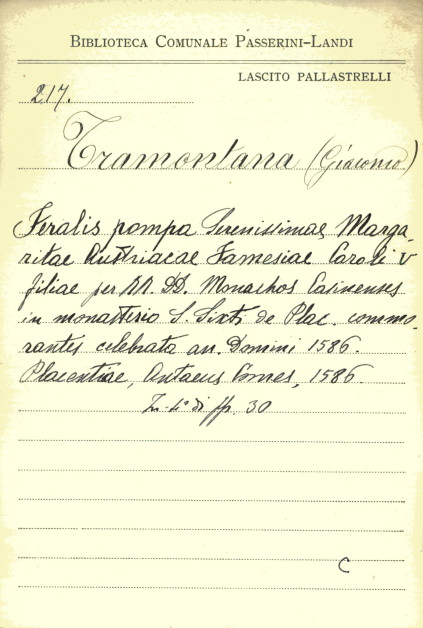 BIBLIOTECA COMUNALE PASSERINI-LANDI
LASCITO PALLASTRELLI
217.
Tramontana (Giacomo)
Feralis pompa Serenissimae Marga-
ritae Austriacae Farnesiae Caroli V
filiae per RR. DD. Monachos Casinenses
in monasterio S. Sixti de Plac. commo-
rantes celebrata an. Domini 1586.
Placentiae, Anteus Comes, 1586.
in 4° di pp. 30
C